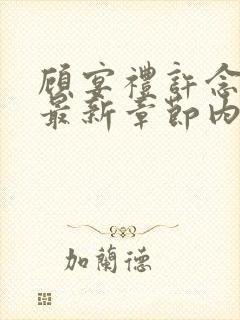 顧宴禮許念
最新章節內
加蘭德